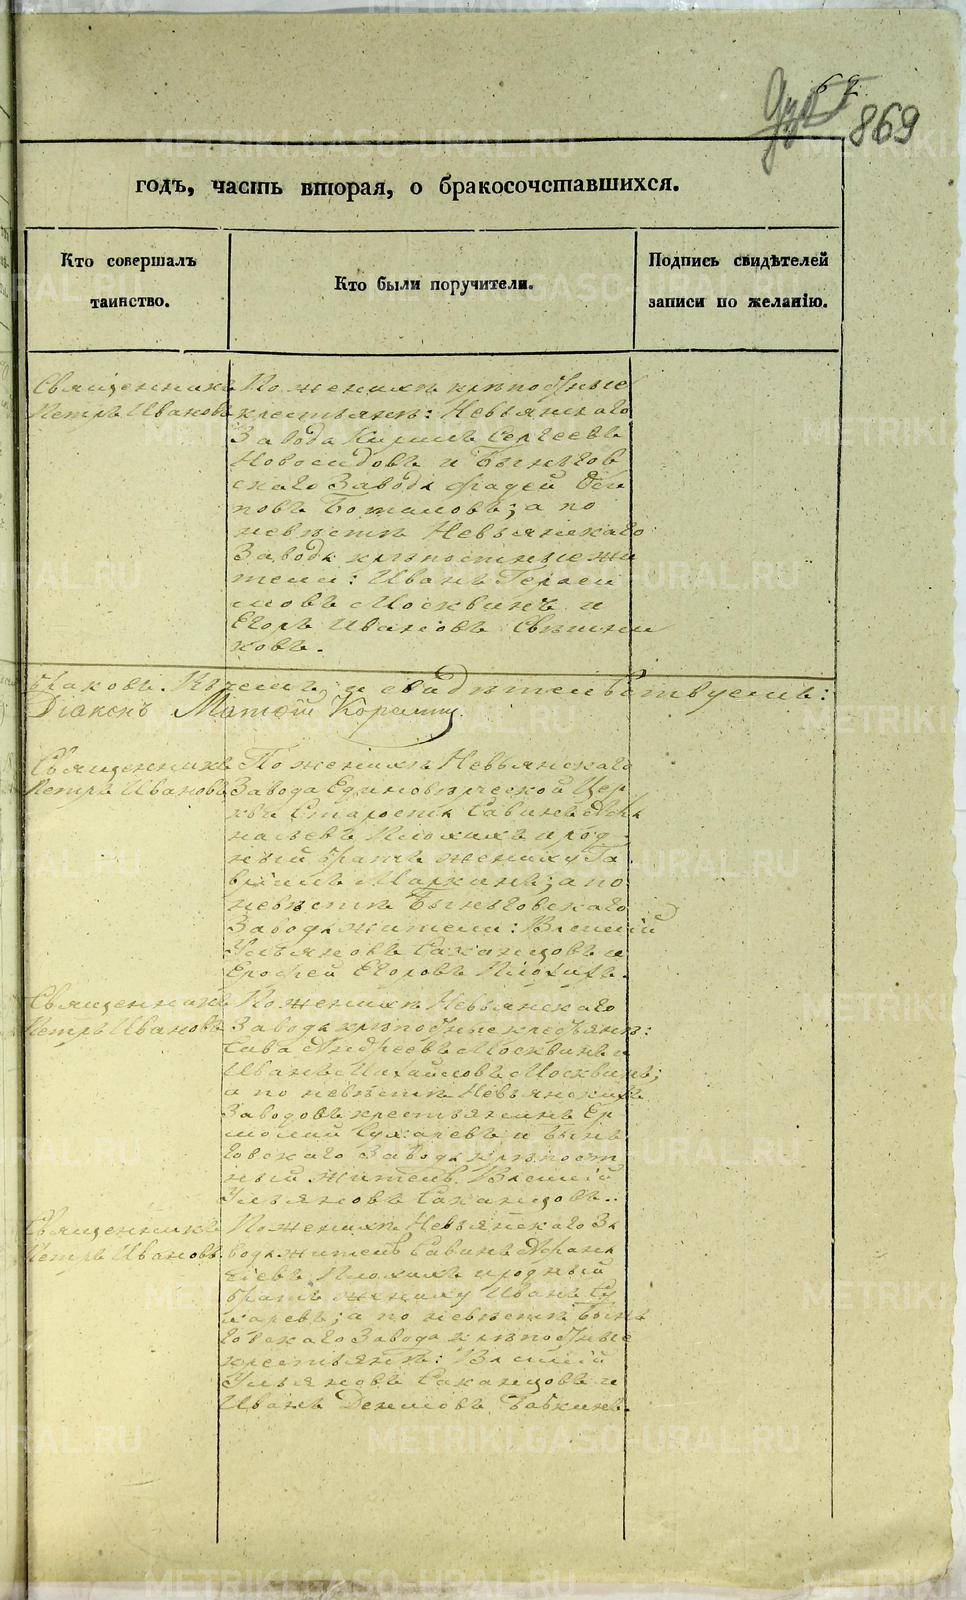 62
869
годъ, часть вторая, о бракосочетавшихся.
Кто совершалъ
таинство.
Кто были поручители.
Подпись свидѣтелей
записи по желанію.
Священникъ
Петръ Ивановъ
По женихѣ крѣпостные
крестьяне: Невьянскаго
Завода Кирилъ Сергеевъ
Новосидовъ и Быньгов
скаго Завода Фадей Оси
повъ Боталовъ; а по
невѣстѣ Невьянскаго
Завода крѣпостные жи
тели: Иванъ Гераси
мовъ Москвинъ и
Егоръ Ивановъ Свѣшни
ковъ.
браковъ. Къ чему и свидѣтельствуемъ:
Діаконъ Матфій
Священникъ
Петръ Ивановъ
По женихѣ Невьянскаго
Завода Единовѣрческой Цер
кви Староста Савинъ Афа
насьевъ Плохихъ и род
ный братъ жениху Га
врилъ Маркинъ; а по
невѣстѣ Быньговскаго
Завода жители: Василій
Ульяновъ Саканцовъ и
Ерофей Егоровъ Плохихъ.
Священникъ
Петръ Ивановъ
По женихѣ Невьянскаго
Завода крѣпостные крестьяне:
Сава Андреевъ Москвинъ и
Иванъ Михайловъ Москвинъ;
а по невѣстѣ Невьянскихъ
Заводовъ крестьянинъ Ер
молай Сухаревъ и Бынь
говскаго Завода крѣпост
ный житель Василій
Ульяновъ Саканцовъ.
Священникъ
Петръ Ивановъ.
По женихѣ Невьянскаго За
вода житель Савинъ Афана
сіевъ Плохихъ и родный
братъ жениху Иванъ Су
харевъ; а по невѣстѣ Бынь
говскаго Завода крѣпостные
крестьяне: Василій
Ульяновъ Саканцовъ и
Иванъ Денисовъ Бабкинъ.
METRIKI.GASO-URAL.RU